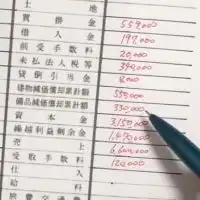 土地
買掛金 559,000
借入金 197,000
前受手数料 20,000
未払法人税等 394,000
貸倒引当金 8,000
建物減価償却累計額 550,000
備品減価償却累計額 330,000
資本金 3,150,000
繰越利益剰余金
売上 6,600,000
受取手数料 120,000
仕入
給料
旅費交通費